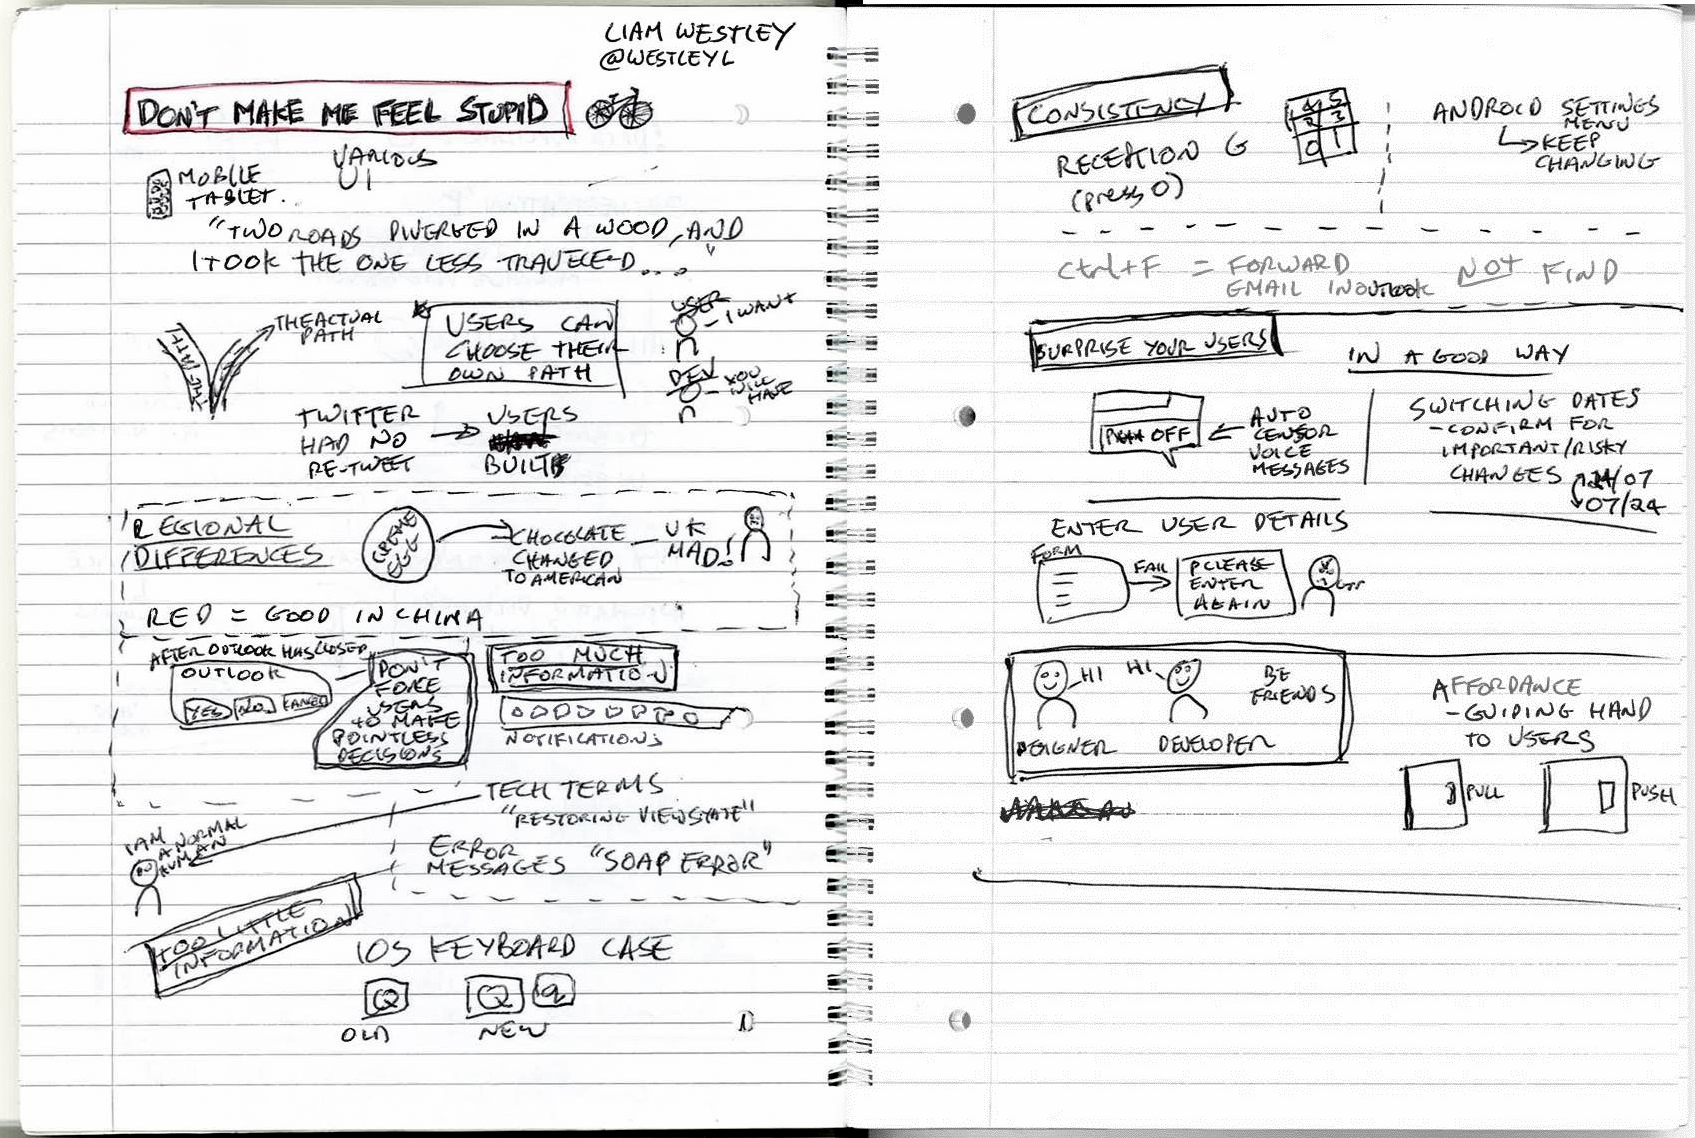 LIAM WESTLEY
@WESTLEYL
DON'T MAKE ME FEEL STUPID
VARIOUS
UI
MOBILE
TABLET..
"TWO ROADS DIVERGED IN A WOOD, AND
I TOOK THE ONE LESS TRAVELED...."
THE PATH
THE ACTUAL
PATH
USERS CAN
CHOOSE THEIR
OWN PATH
USER
- I WANT
DEV
- YOU
WILL
HAVE
TWITTER
HAD NO
RE-TWEET
USERS
BUILT
REGIONAL
DIFFERENCES
CREME
EGG
CHOCOLATE
CHANGED
TO AMERICAN
- UK
MAD!
RED = GOOD IN CHINA
AFTER OUTLOOK HAS CLOSED..
OUTLOOK
YES NO CANCEL
DON'T
FORCE
USERS
TO MAKE
POINTLESS
DECISIONS
TOO MUCH
INFORMATION
NOTIFICATIONS
TECH TERMS
"RESTORING VIEWSTATE"
I AM
A NORMAL
HUMAN
ERROR
MESSAGES "SOAP ERROR"
TOO LITTLE
INFORMATION
IOS KEYBOARD CASE
Q
Q q
OLD
NEW
CONSISTENCY
RECEPTION G
(press 0)
4 5
2 3
0 1
ANDROID SETTINGS
MENU
KEEP
CHANGING
Ctrl+F = FORWARD
EMAIL IN OUTLOOK
NOT FIND
SURPRISE YOUR USERS
IN A GOOD WAY
OFF
AUTO
CENSOR
VOICE
MESSAGES
SWITCHING DATES
- CONFIRM FOR
IMPORTANT/RISKY
CHANGES
24/07
07/24
ENTER USER DETAILS
FORM
FAIL
PLEASE
ENTER
AGAIN
HI
HI
BE
FRIENDS
DESIGNER
DEVELOPER
AFFORDANCE
- GUIDING HAND
TO USERS
PULL
PUSH